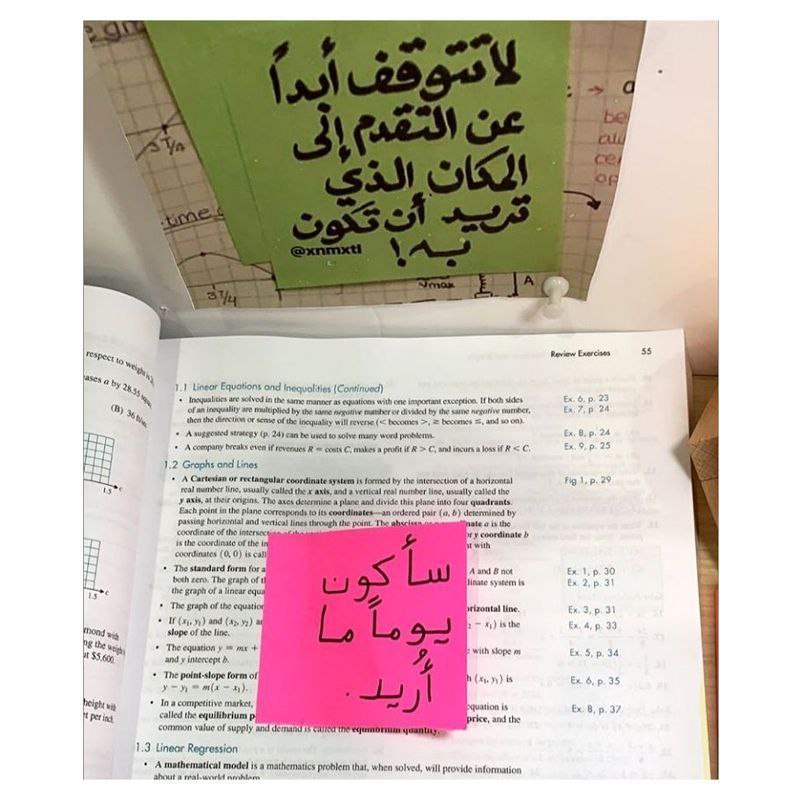 لا تتوقف أبداً
عن التقدم إلى
المكان الذي
تريد أن تكون
به !
@xnmxtl
3T/4
Vmax
A
time
3T/4
respect to weight
ases a by 28.55
(B) 36
1.5
c
1.5
c
mond with
ng the weight
at $5,600.
height with
et per inch
Review Exercises 55
1.1 Linear Equations and Inequalities (Continued)
• Inequalities are solved in the same manner as equations with one important exception. If both sides Ex. 6, p. 23
of an inequality are multiplied by the same negative number or divided by the same negative number, Ex. 7, p. 24
then the direction or sense of the inequality will reverse (< becomes >, ≥ becomes ≤, and so on).
• A suggested strategy (p. 24) can be used to solve many word problems. Ex. 8, p. 24
• A company breaks even if revenues R = costs C, makes a profit if R > C, and incurs a loss if R < C. Ex. 9, p. 25
1.2 Graphs and Lines
• A Cartesian or rectangular coordinate system is formed by the intersection of a horizontal Fig 1, p. 29
real number line, usually called the x axis, and a vertical real number line, usually called the
y axis, at their origins. The axes determine a plane and divide this plane into four quadrants.
Each point in the plane corresponds to its coordinates—an ordered pair (a, b) determined by
passing horizontal and vertical lines through the point. The abscissa a is the
coordinate of the or y coordinate b
is the coordinate of the with
coordinates (0, 0) is
• The standard form A and B not Ex. 1, p. 30
both zero. The graph of system is Ex. 2, p. 31
the graph of a linear
• The graph of the equation horizontal line. Ex. 3, p. 31
• If (x₁, y₁) and (x₂, y₂) − x₁) is the Ex. 4, p. 33
slope of the line.
• The equation y = mx + with slope m Ex. 5, p. 34
and y intercept b.
• The point-slope form of (x₁, y₁) is Ex. 6, p. 35
y − y₁ = m(x − x₁).
• In a competitive market, equation is Ex. 8, p. 37
called the equilibrium price, and the
common value of supply and demand is called the equilibrium quantity.
سأكون
يوماً ما
أُريد .
1.3 Linear Regression
• A mathematical model is a mathematics problem that, when solved, will provide information
about a real-world problem.